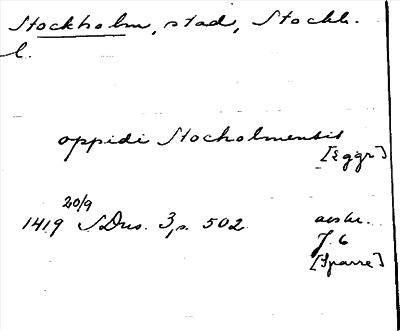 Stockholm, stad, Stockh.
l.
oppidi Stocholmensis
[Eggr]
20/9
1419 SDns. 3, s. 502 avskr.
J. 6
[Sparre]